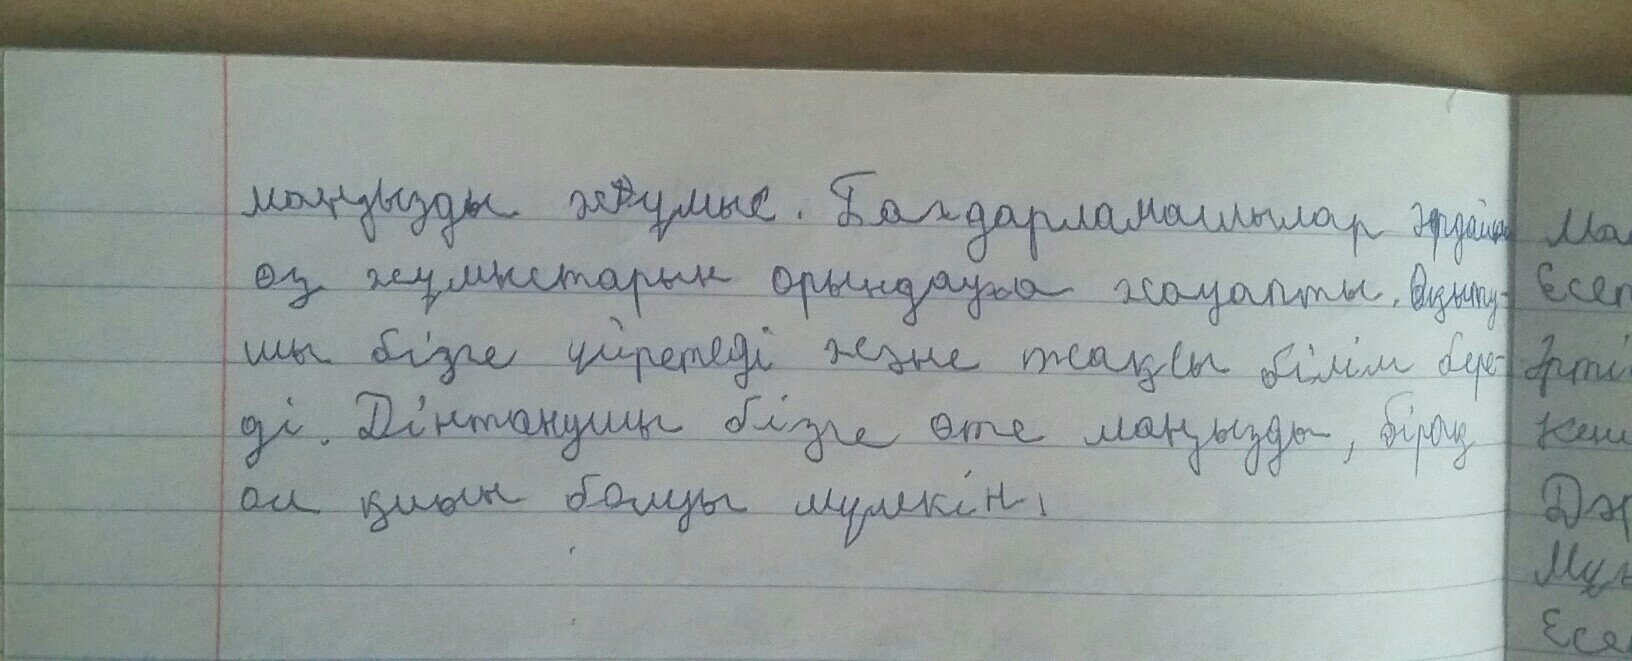 маңызды жұмыс. Бағдарламашылар әрдайым
өз жұмыстарын орындауға жауапты. Оқыту-
шы бізге үйретеді және жақсы білім бере-
ді. Дінтанушы бізге өте маңызды, бірақ
ол қиын болуы мүмкін.
Ма
Есеп
Әрті
Кеш
Дәр
Мұн
Есе